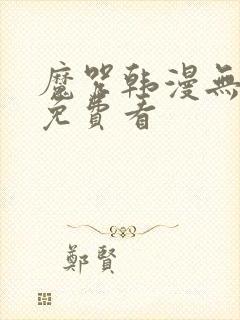 魔咒韩漫無
免費看
鄭賢